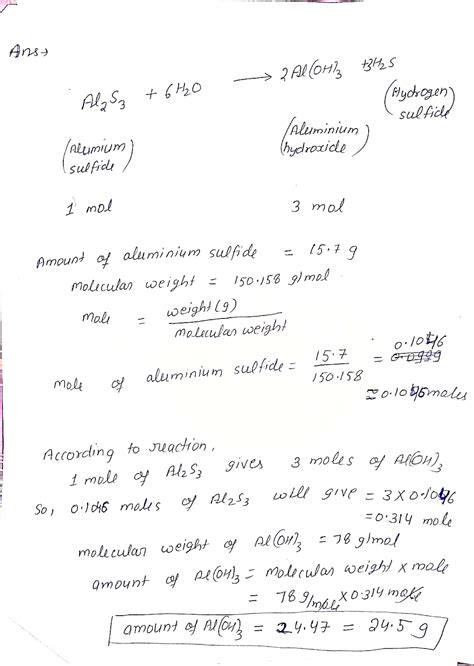 Ans→
Al₂S₃ + 6H₂O ⟶ 2Al(OH)₃ + 3H₂S
(Alumium sulfide) (Aluminium hydroxide) (Hydrogen sulfide)
1 mol 3 mol
Amount of aluminium sulfide = 15.7 g
Molecular weight = 150.158 g/mol
Mole = weight (g) / molecular weight
Mole of aluminium sulfide = 15.7 / 150.158 = 0.1046
≈ 0.1046 moles
According to reaction,
1 mole of Al₂S₃ gives 3 moles of Al(OH)₃
So, 0.1046 moles of Al₂S₃ will give = 3 × 0.1046
= 0.314 mole
molecular weight of Al(OH)₃ = 78 g/mol
amount of Al(OH)₃ = molecular weight × mole
= 78 g/mole × 0.314 mole
amount of Al(OH)₃ = 24.47 = 24.5 g